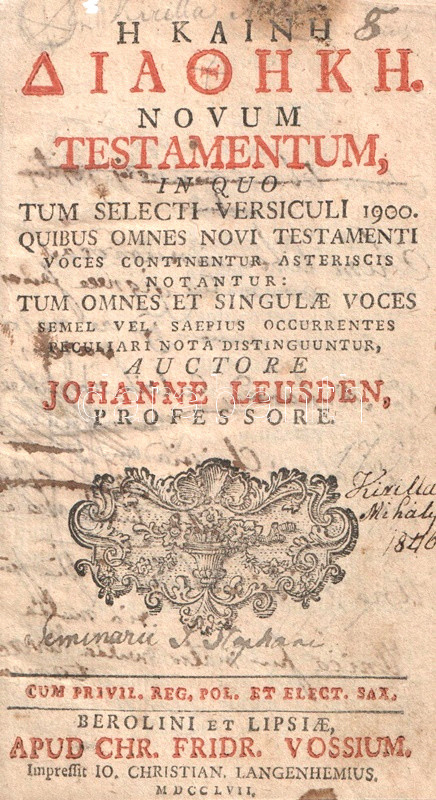 Kirilla
Η ΚΑΙΝΗ
8
ΔΙΑΘΗΚΗ.
NOVUM
TESTAMENTUM,
IN QUO
TUM SELECTI VERSICULI 1900.
QUIBUS OMNES NOVI TESTAMENTI
VOCES CONTINENTUR ASTERISCIS
NOTANTUR:
TUM OMNES ET SINGULÆ VOCES
SEMEL VEL SAEPIUS OCCURRENTES
PECULIARI NOTA DISTINGUUNTUR,
AUCTORE
JOHANNE LEUSDEN,
PROFESSORE.
Kirilla
Mihály
1840
Seminarii S. Stephani
CUM PRIVIL. REG. POL. ET ELECT. SAX.
BEROLINI ET LIPSIÆ,
APUD CHR. FRIDR. VOSSIUM.
Impressit IO. CHRISTIAN. LANGENHEMIUS.
MDCCLVII.